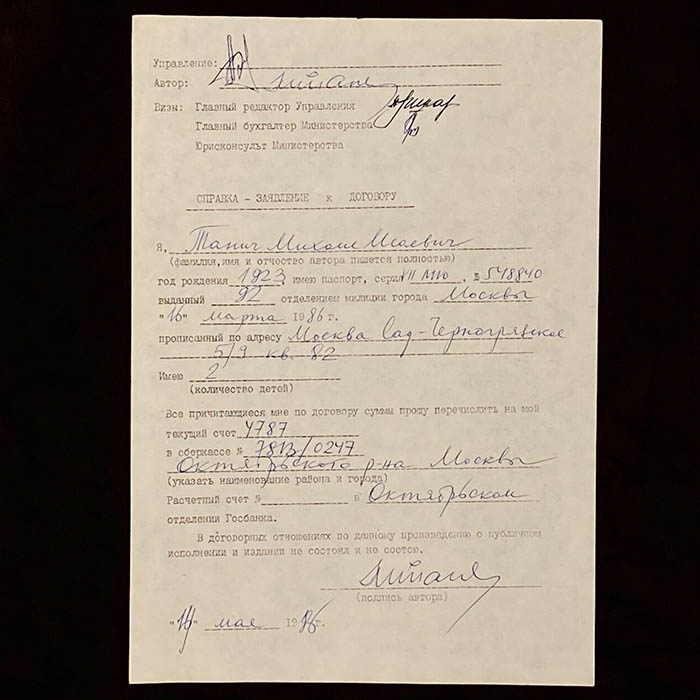 Управление:
Автор:
Визы: Главный редактор Управления
Главный бухгалтер Министерства
Юрисконсульт Министерства
СПРАВКА - ЗАЯВЛЕНИЕ к ДОГОВОРУ
Я, Танич Михаил Исаевич
(фамилия, имя и отчество автора пишется полностью)
год рождения 1923, имею паспорт, серия VII МЮ, № 548840
выданный 92 отделением милиции города Москвы
"16" марта 1986 г.
прописанный по адресу Москва Сад-Черногрязская
5/9 кв. 82
Имею 2
(количество детей)
Все причитающиеся мне по договору суммы прошу перечислить на мой
текущий счет 4787
в сберкассе № 7813/0247
Октябрьского р-на Москвы
(указать наименование района и города)
Расчетный счет № в Октябрьском
отделении Госбанка.
В договорных отношениях по данному произведению о публичном
исполнении и издании не состоял и не состою.
(подпись автора)
"19" мая 1986г.